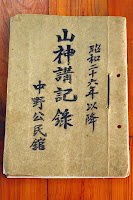 昭和二十六年以降
山神講記録
中野公民館